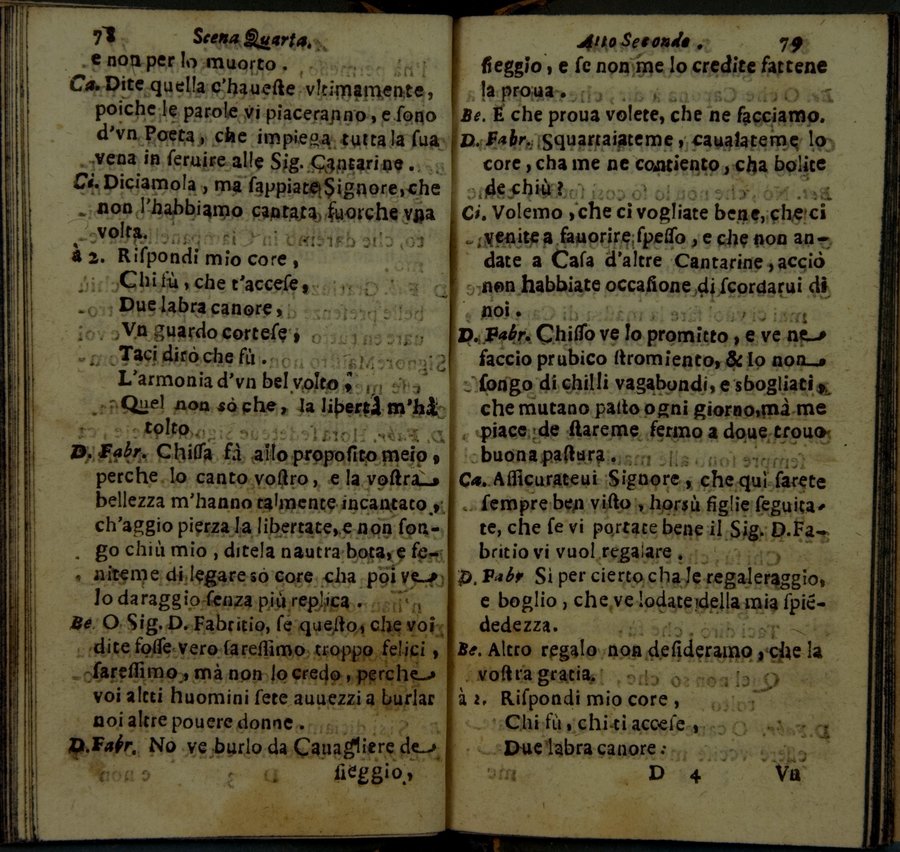 78 Scena Quarta.
e non per lo muorto.
Ca. Dite quella c'haueſte vltimamente,
poiche le parole vi piaceranno, e ſono
d'vn Poeta, che impiega tutta la ſua
vena in ſeruire alle Sig. Cantarine.
Ci. Diciamola, ma ſappiate Signore, che
non l'habbiamo cantata fuorche vna
volta.
à 2. Riſpondi mio core,
Chi fù, che t'acceſe,
Due labra canore,
Vn guardo corteſe,
Taci dirò che fù.
L'armonia d'vn bel volto,
Quel non sò che, la libertà m'hà
tolto
D. Fabr. Chiſſa fà allo propoſito meio,
perche lo canto voſtro, e la voſtra
bellezza m'hanno talmente incantato,
ch'aggio pierza la libertate, e non ſon-
go chiù mio, ditela nautra bota, e fe-
niteme di legare sò core cha poi ve
lo daraggio ſenza più replica.
Be. O Sig. D. Fabritio, ſe queſto, che voi
dite foſſe vero ſareſſimo troppo felici,
ſareſſimo, mà non lo credo, perche
voi altti huomini ſete auuezzi a burlar
noi altre pouere donne.
D. Fabr. No ve burlo da Cauagliere de
ſieggio,
Atto Secondo. 79
ſieggio, e ſe non me lo credite fattene
la proua.
Be. E che proua volete, che ne facciamo.
D. Fabr. Squartaiateme, caualateme lo
core, cha me ne contiento, cha bolite
de chiù?
Ci. Volemo, che ci vogliate bene, che ci
venite a fauorire ſpeſſo, e che non an-
date a Caſa d'altre Cantarine, acciò
non habbiate occaſione di ſcordarui di
noi.
D. Fabr. Chiſſo ve lo promitto, e ve ne
faccio prubico ſtromiento, & Io non
ſongo di chilli vagabondi, e sbogliati,
che mutano paſto ogni giorno, mà me
piace de ſtareme fermo a doue trouo
buona paſtura.
Ca. Aſſicurateui Signore, che quì ſarete
ſempre ben viſto, horsù figlie ſeguita-
te, che ſe vi portate bene il Sig. D. Fa-
britio vi vuol regalare.
D. Fabr Si per cierto cha le regaleraggio,
e boglio, che ve lodate della mia ſpié-
dedezza.
Be. Altro regalo non deſideramo, che la
voſtra gratia.
à 2. Riſpondi mio core,
Chi fù, chi ti acceſe,
Due labra canore:
D 4 Vn